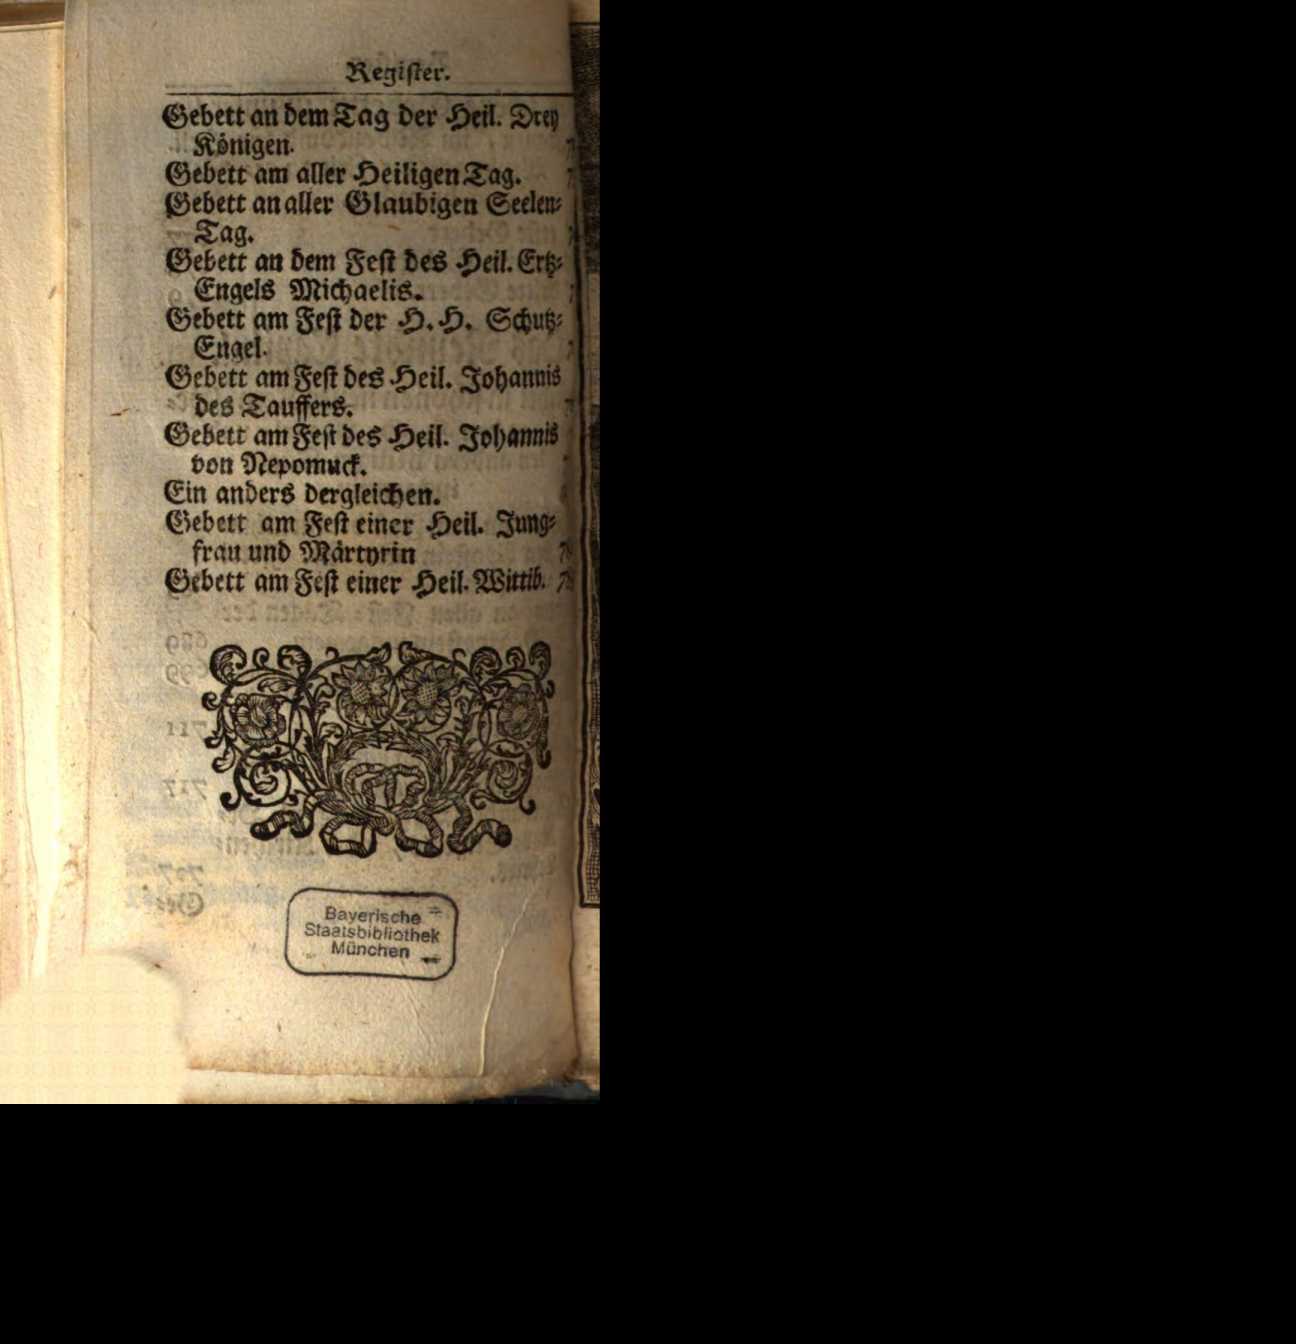 Register.
Gebett an dem Tag der Heil. Drey
Königen.
Gebett am aller Heiligen Tag.
Gebett an aller Glaubigen Seelen-
Tag.
Gebett an dem Fest des Heil. Ertz-
Engels Michaelis.
Gebett am Fest der H. H. Schutz-
Engel.
Gebett am Fest des Heil. Johannis
des Tauffers.
Gebett am Fest des Heil. Johannis
von Nepomuck.
Ein anders dergleichen.
Gebett am Fest einer Heil. Jung-
frau und Märtyrin
Gebett am Fest einer Heil. Wittib.
Bayerische
Staatsbibliothek
München